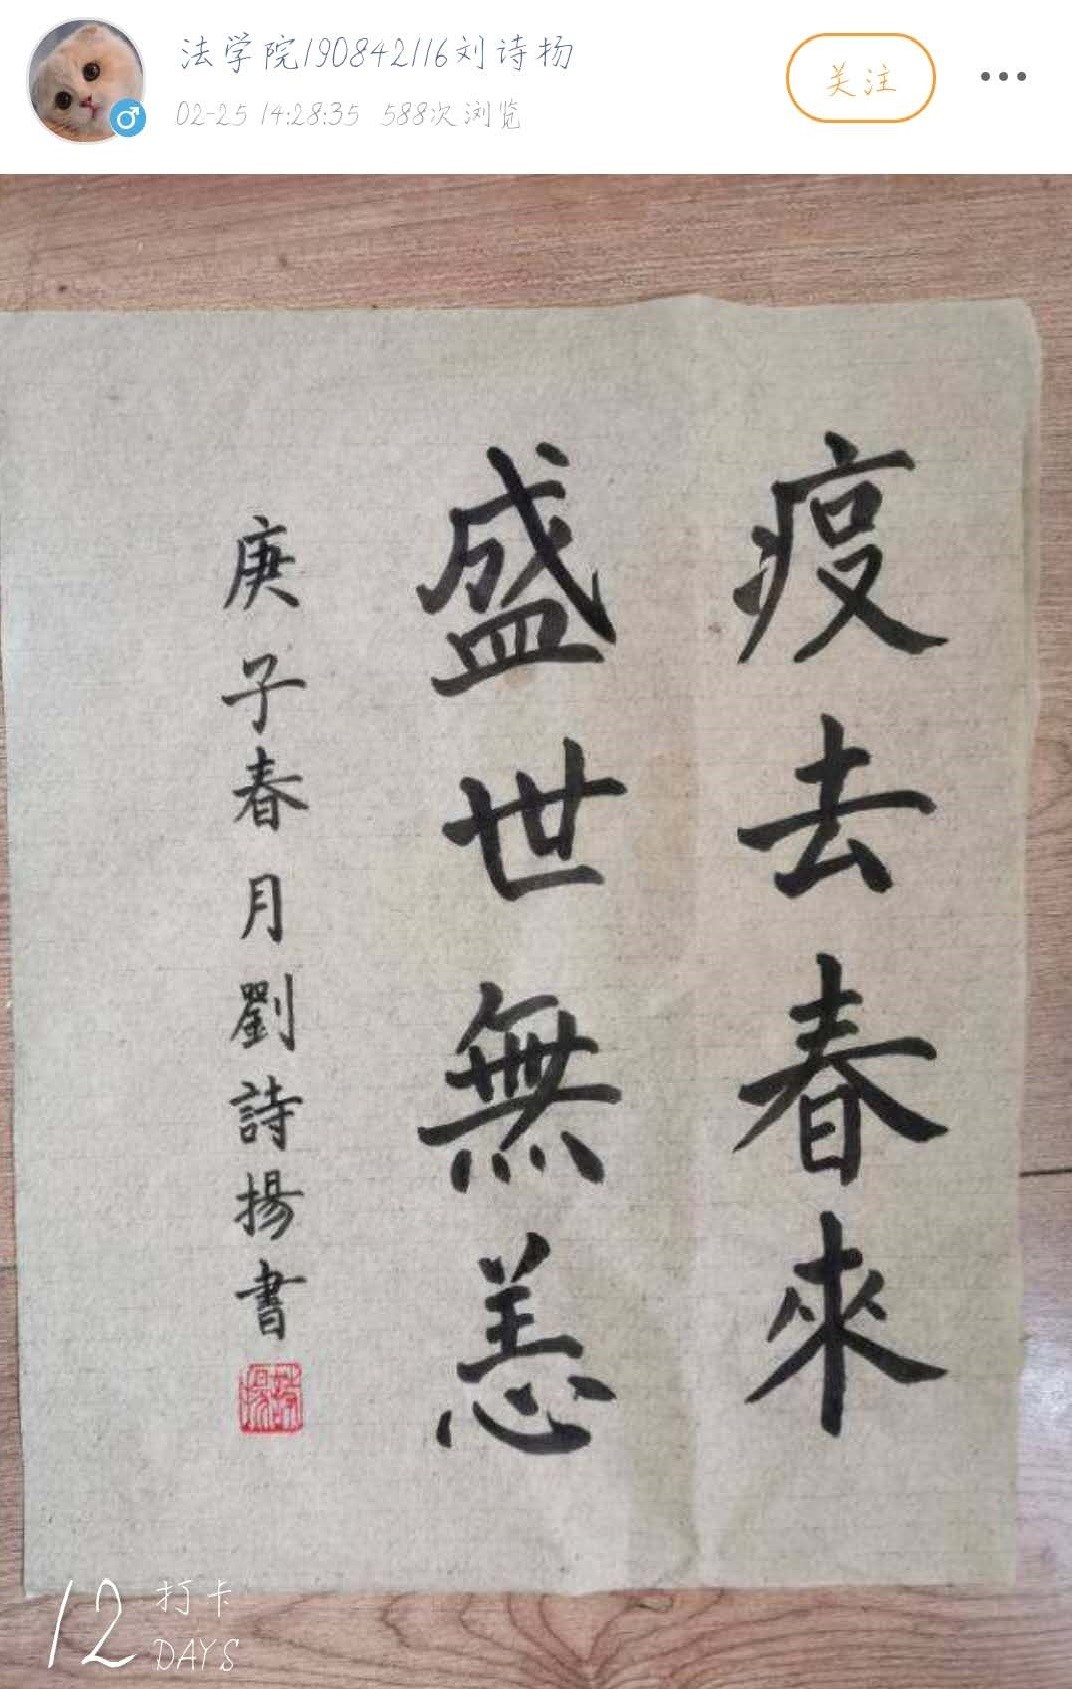 法学院190842116刘诗扬
关注
02-25 14:28:35 588次浏览
疫去春來
盛世無恙
庚子春月劉詩揚書
詩揚
12 打卡 DAYS